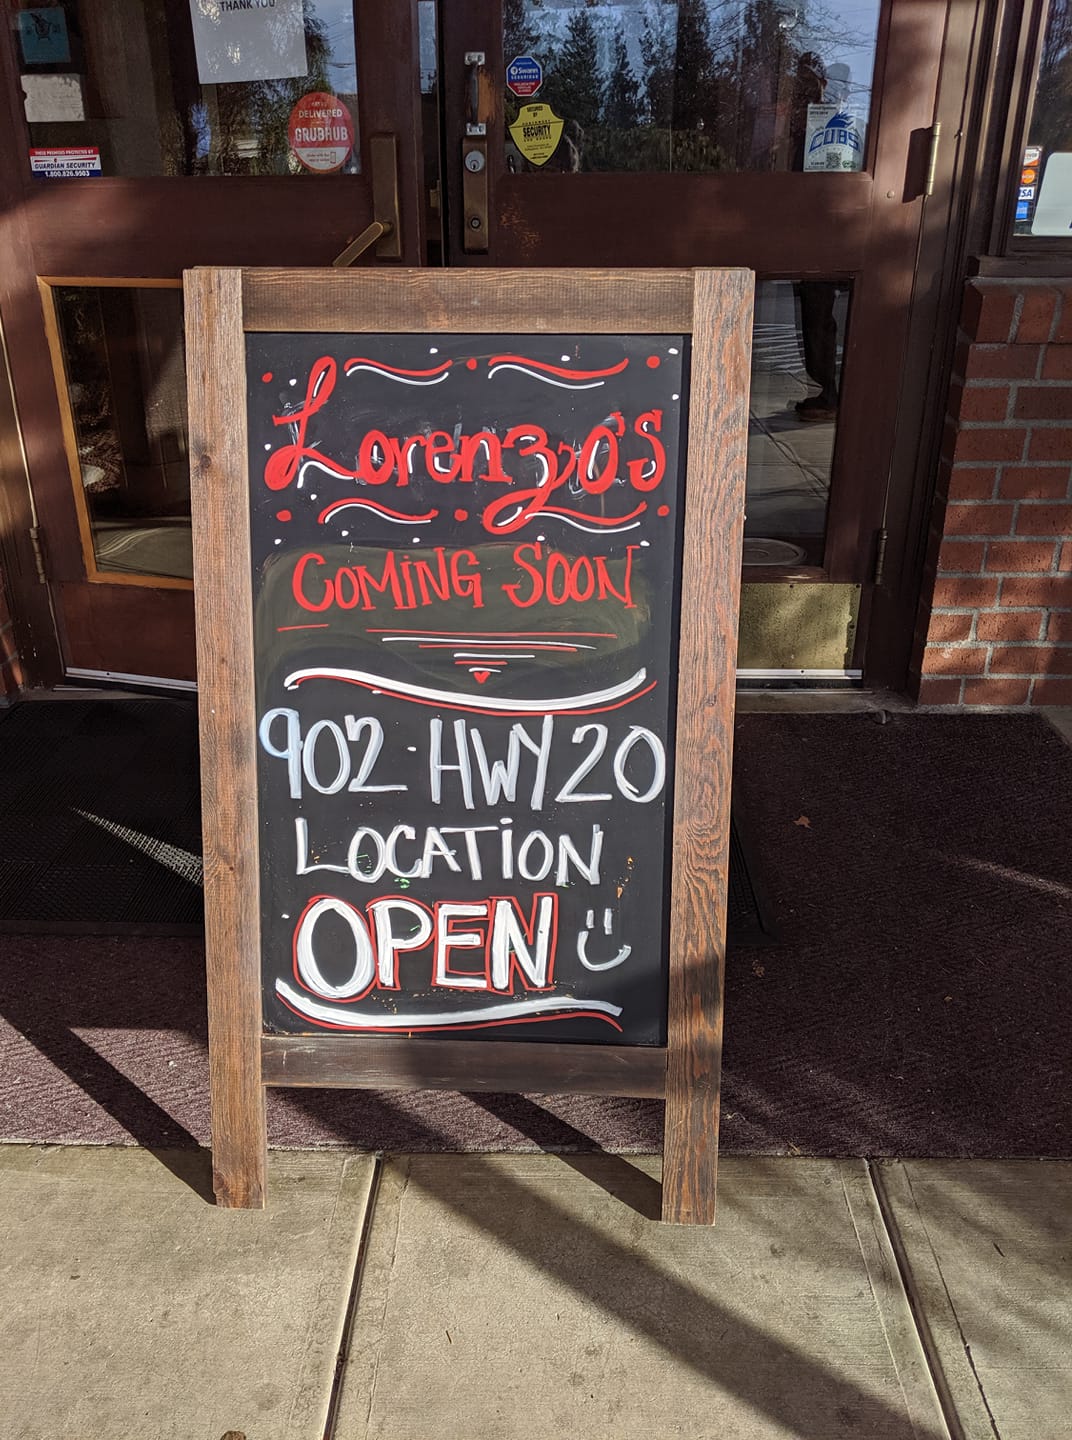 THANK YOU
DELIVERED
GRUBHUB
THESE PREMISES PROTECTED BY
GUARDIAN SECURITY
1.800.826.9503
Swann
SECURITY
CUBS
VISA
Lorenzo's
COMING SOON
902 · HWY 20
LOCATION
OPEN